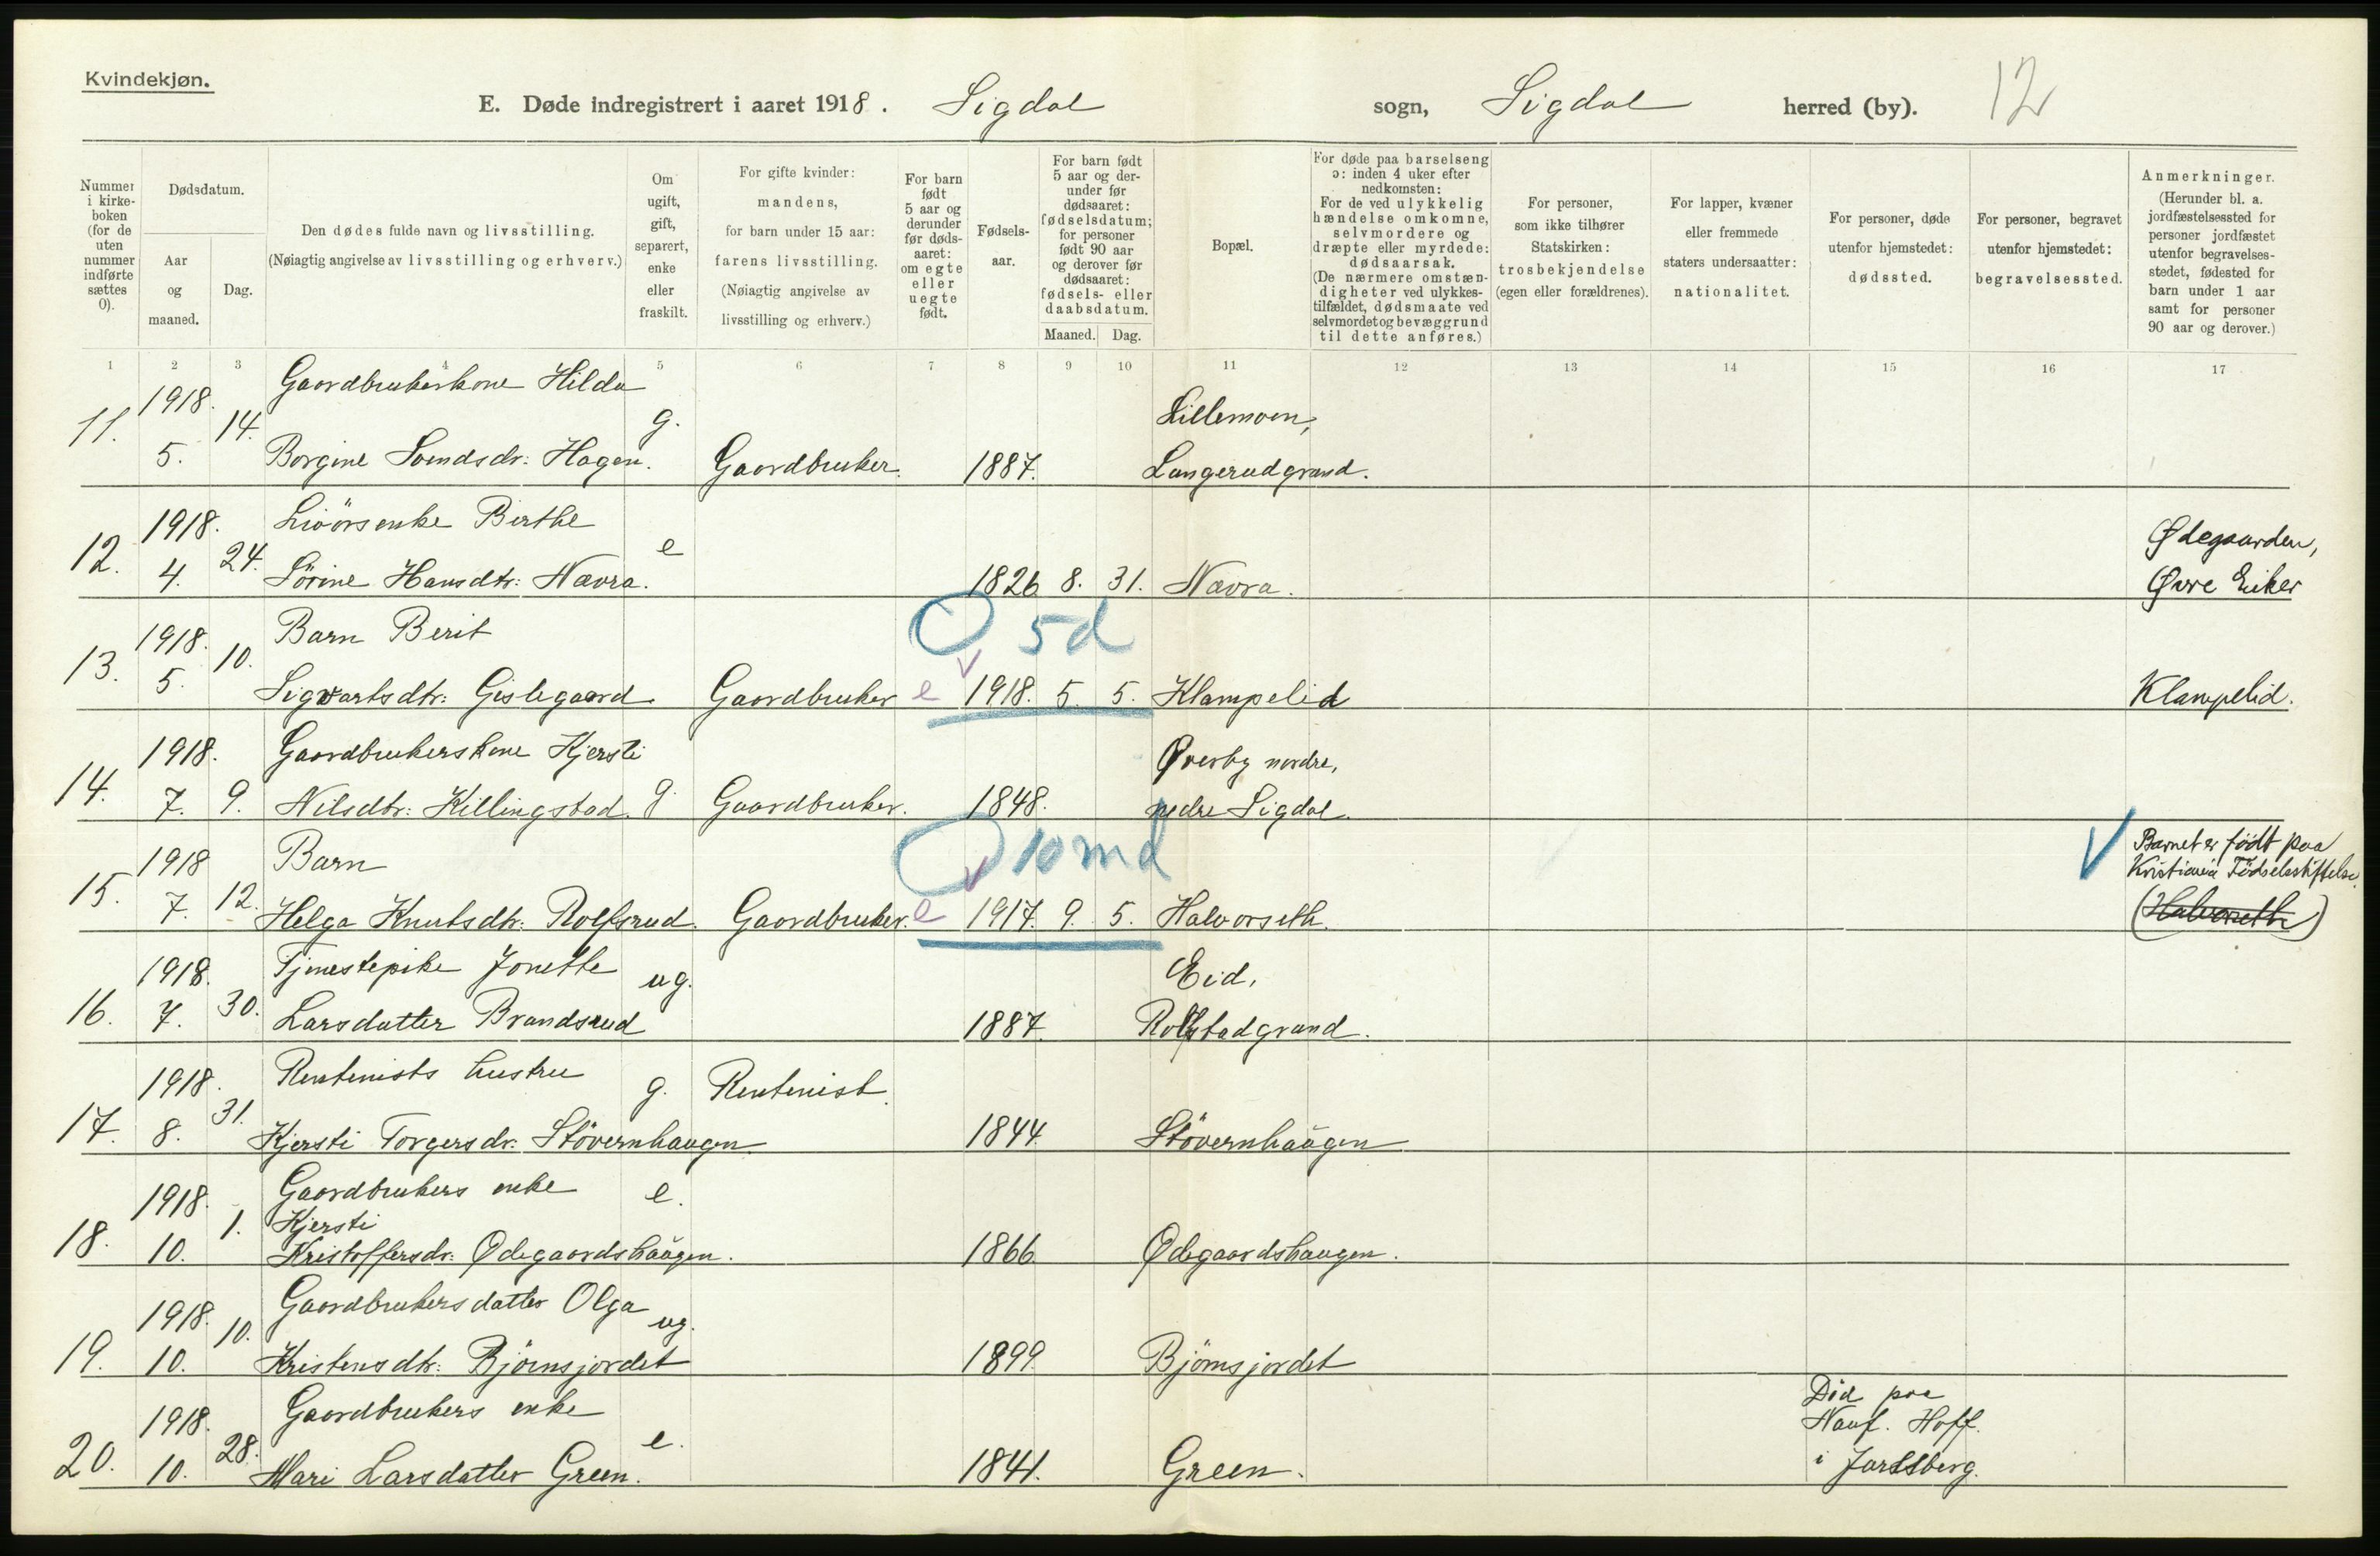 Kvindekjøn.
E. Døde indregistrert i aaret 1918. Sigdal sogn, Sigdal herred (by). 12
Nummer i kirkeboken (for de uten nummer indførte sættes 0).
Dødsdatum.
Aar og maaned.
Dag.
Den dødes fulde navn og livsstilling.
(Nøiagtig angivelse av livsstilling og erhverv.)
Om ugift, gift, separert, enke eller fraskilt.
For gifte kvinder: mandens, for barn under 15 aar: farens livsstilling. (Nøiagtig angivelse av livsstilling og erhverv.)
For barn født 5 aar og derunder før dødsaaret: om egte eller uegte født.
Fødselsaar.
For barn født 5 aar og derunder før dødsaaret: fødselsdatum; for personer født 90 aar og derover før dødsaaret: fødsels- eller daabsdatum.
Maaned. Dag.
Bopæl.
For døde paa barselseng ɔ: inden 4 uker efter nedkomsten: For de ved ulykkelig hændelse omkomne, selvmordere og dræpte eller myrdede: dødsaarsak. (De nærmere omstændigheter ved ulykkestilfældet, dødsmaate ved selvmordet og bevæggrund til dette anføres.)
For personer, som ikke tilhører Statskirken: trosbekjendelse (egen eller forældrenes).
For lapper, kvæner eller fremmede staters undersaatter: nationalitet.
For personer, døde utenfor hjemstedet: dødssted.
For personer, begravet utenfor hjemstedet: begravelsessted.
Anmerkninger. (Herunder bl. a. jordfæstelsessted for personer jordfæstet utenfor begravelsesstedet, fødested for barn under 1 aar samt for personer 90 aar og derover.)
1 2 3 4 5 6 7 8 9 10 11 12 13 14 15 16 17
1918. Gaardbrukerkone Hilda Lillemoen,
11. 5. 14. Borgine Svendsdr: Hagen. g. Gaardbruker. 1887. Langerudgrand.
1918. Livörsenke Birthe Ødegaarden,
12. 4. 24. Sörine Hansdtr: Nævra. e 1826 8. 31. Nævra. Øvre Eiker
1918. Barn Berit 5d
13. 5. 10. Sigvartsdtr: Gislegaard. Gaardbruker e 1918. 5. 5. Klampelid Klampelid.
1918. Gaardbrukerskone Kjersti Øverby nordre,
14. 7. 9. Nilsdtr: Killingstad. g. Gaardbruker. 1848. nedre Sigdal.
1918 Barn 10 md Barnet er födt paa
Kristiania Födselsstiftelse.
15. 7. 12. Helga Knutsdtr: Rolfsrud. Gaardbruker. e 1917. 9. 5. Halvorseth. (Halvorseth)
1918. Tjenestepike Jonette ug. Eid,
16. 7. 30. Larsdatter Brandsrud 1887. Rolfstadgrand.
1918. Rentenists hustru g. Rentenist.
17. 8. 31. Kjersti Torgersdr: Stövernhaugen. 1844. Stövernhaugen
1918. Gaardbrukers enke e.
18. 10. 1. Kjersti
Kristoffersdr: Ødegaardshaugen. 1866. Ødegaardshaugen.
1918. Gaardbrukersdatter Olga ug.
19. 10. 10. Kristensdtr: Björnsjordet 1899 Björnsjordet
1918. Gaardbrukers enke Död paa
Hoff.
20. 10. 28. Mari Larsdatter Green. e. 1841. Green. i Jarlsberg.